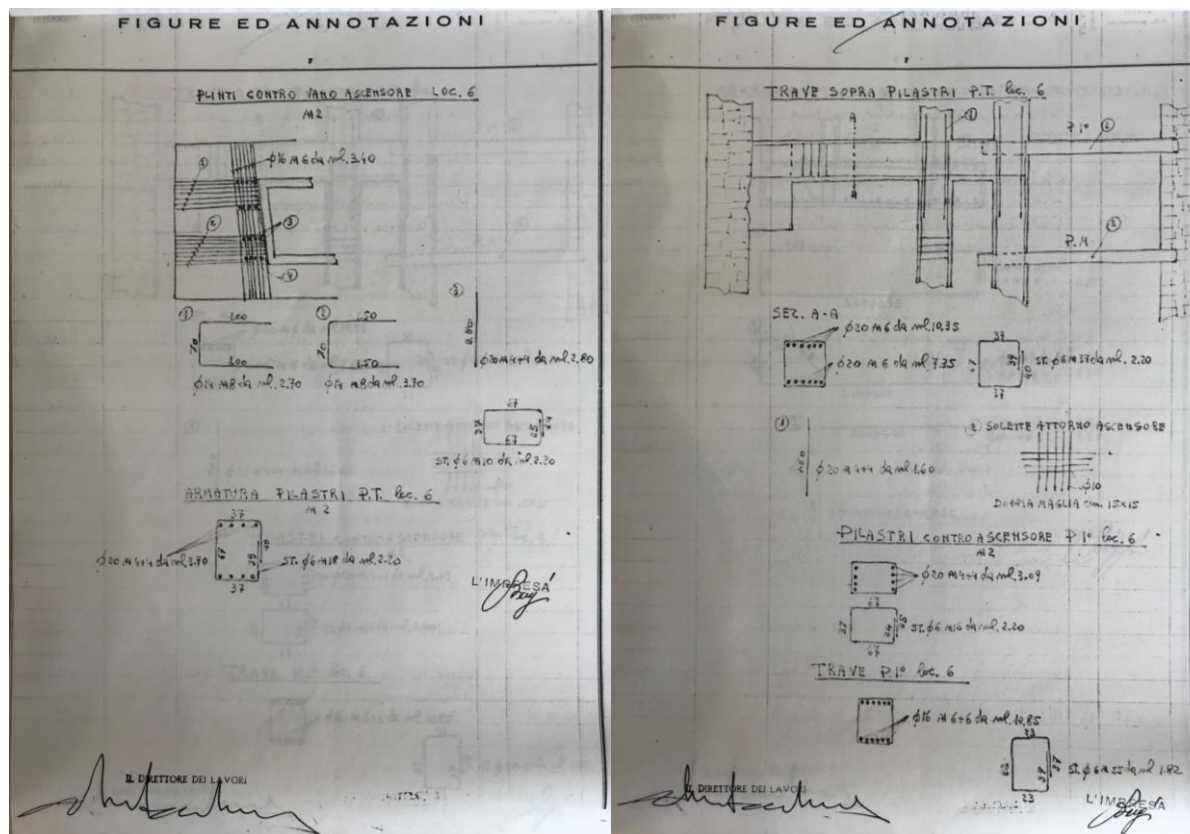 FIGURE ED ANNOTAZIONI
PLINTI CONTRO VANO ASCENSORE LOC. 6
N 2
1
ϕ16 N 6 da ml. 3.40
2
3
4
1
1.00
70
1.00
ϕ14 N8 da ml. 2.70
2
1.50
70
1.50
ϕ14 N8 da ml. 3.70
3
2.80
ϕ20 N 4+4 da ml. 2.80
67
37
67
ST. ϕ6 N10 da ml. 2.20
ARMATURA PILASTRI P.T. loc. 6
N 2
37
67
37
ϕ20 N 4+4 da ml. 3.90
ST. ϕ6 N18 da ml. 2.20
L'IMPRESA
IL DIRETTORE DEI LAVORI
FIGURE ED ANNOTAZIONI
TRAVE SOPRA PILASTRI P.T. loc. 6
A
1
P. 1°
2
P.R.
2
SEZ. A-A
ϕ20 N 6 da ml. 10,35
ϕ20 N 6 da ml. 7.35
37
37
ST. ϕ6 N 37 da ml. 2.20
1
1.60
ϕ20 N 4+4 da ml. 1.60
2 SOLETTE ATTORNO ASCENSORE
ϕ10
DOPPIA MAGLIA cm. 15x15
PILASTRI CONTRO ASCENSORE P.1° loc. 6
N 2
ϕ20 N 4+4 da ml. 3.09
67
37
67
ST. ϕ6 N16 da ml. 2.20
TRAVE P.1° loc. 6
ϕ16 N 6+6 da ml. 10,85
23
23
ST. ϕ6 N 55 da ml. 1.82
IL DIRETTORE DEI LAVORI
L'IMPRESA